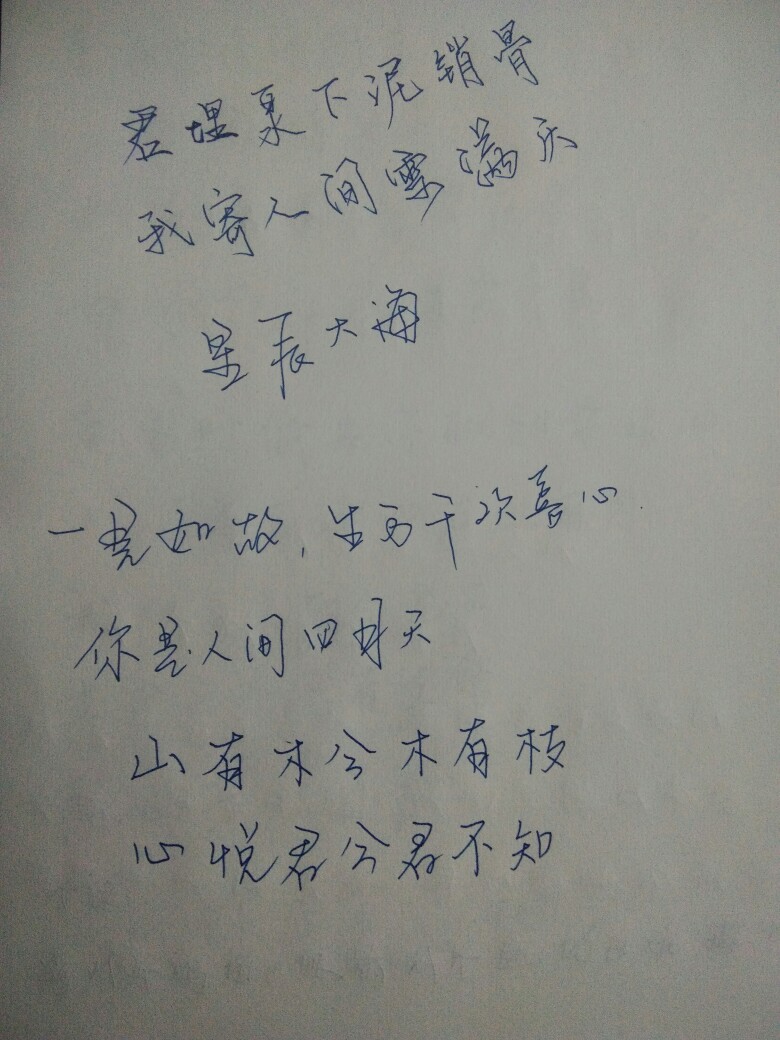 君埋泉下泥销骨
我寄人间雪满头
星辰大海
一见如故,生万千欢喜心.
你是人间四月天
山有木兮木有枝
心悦君兮君不知